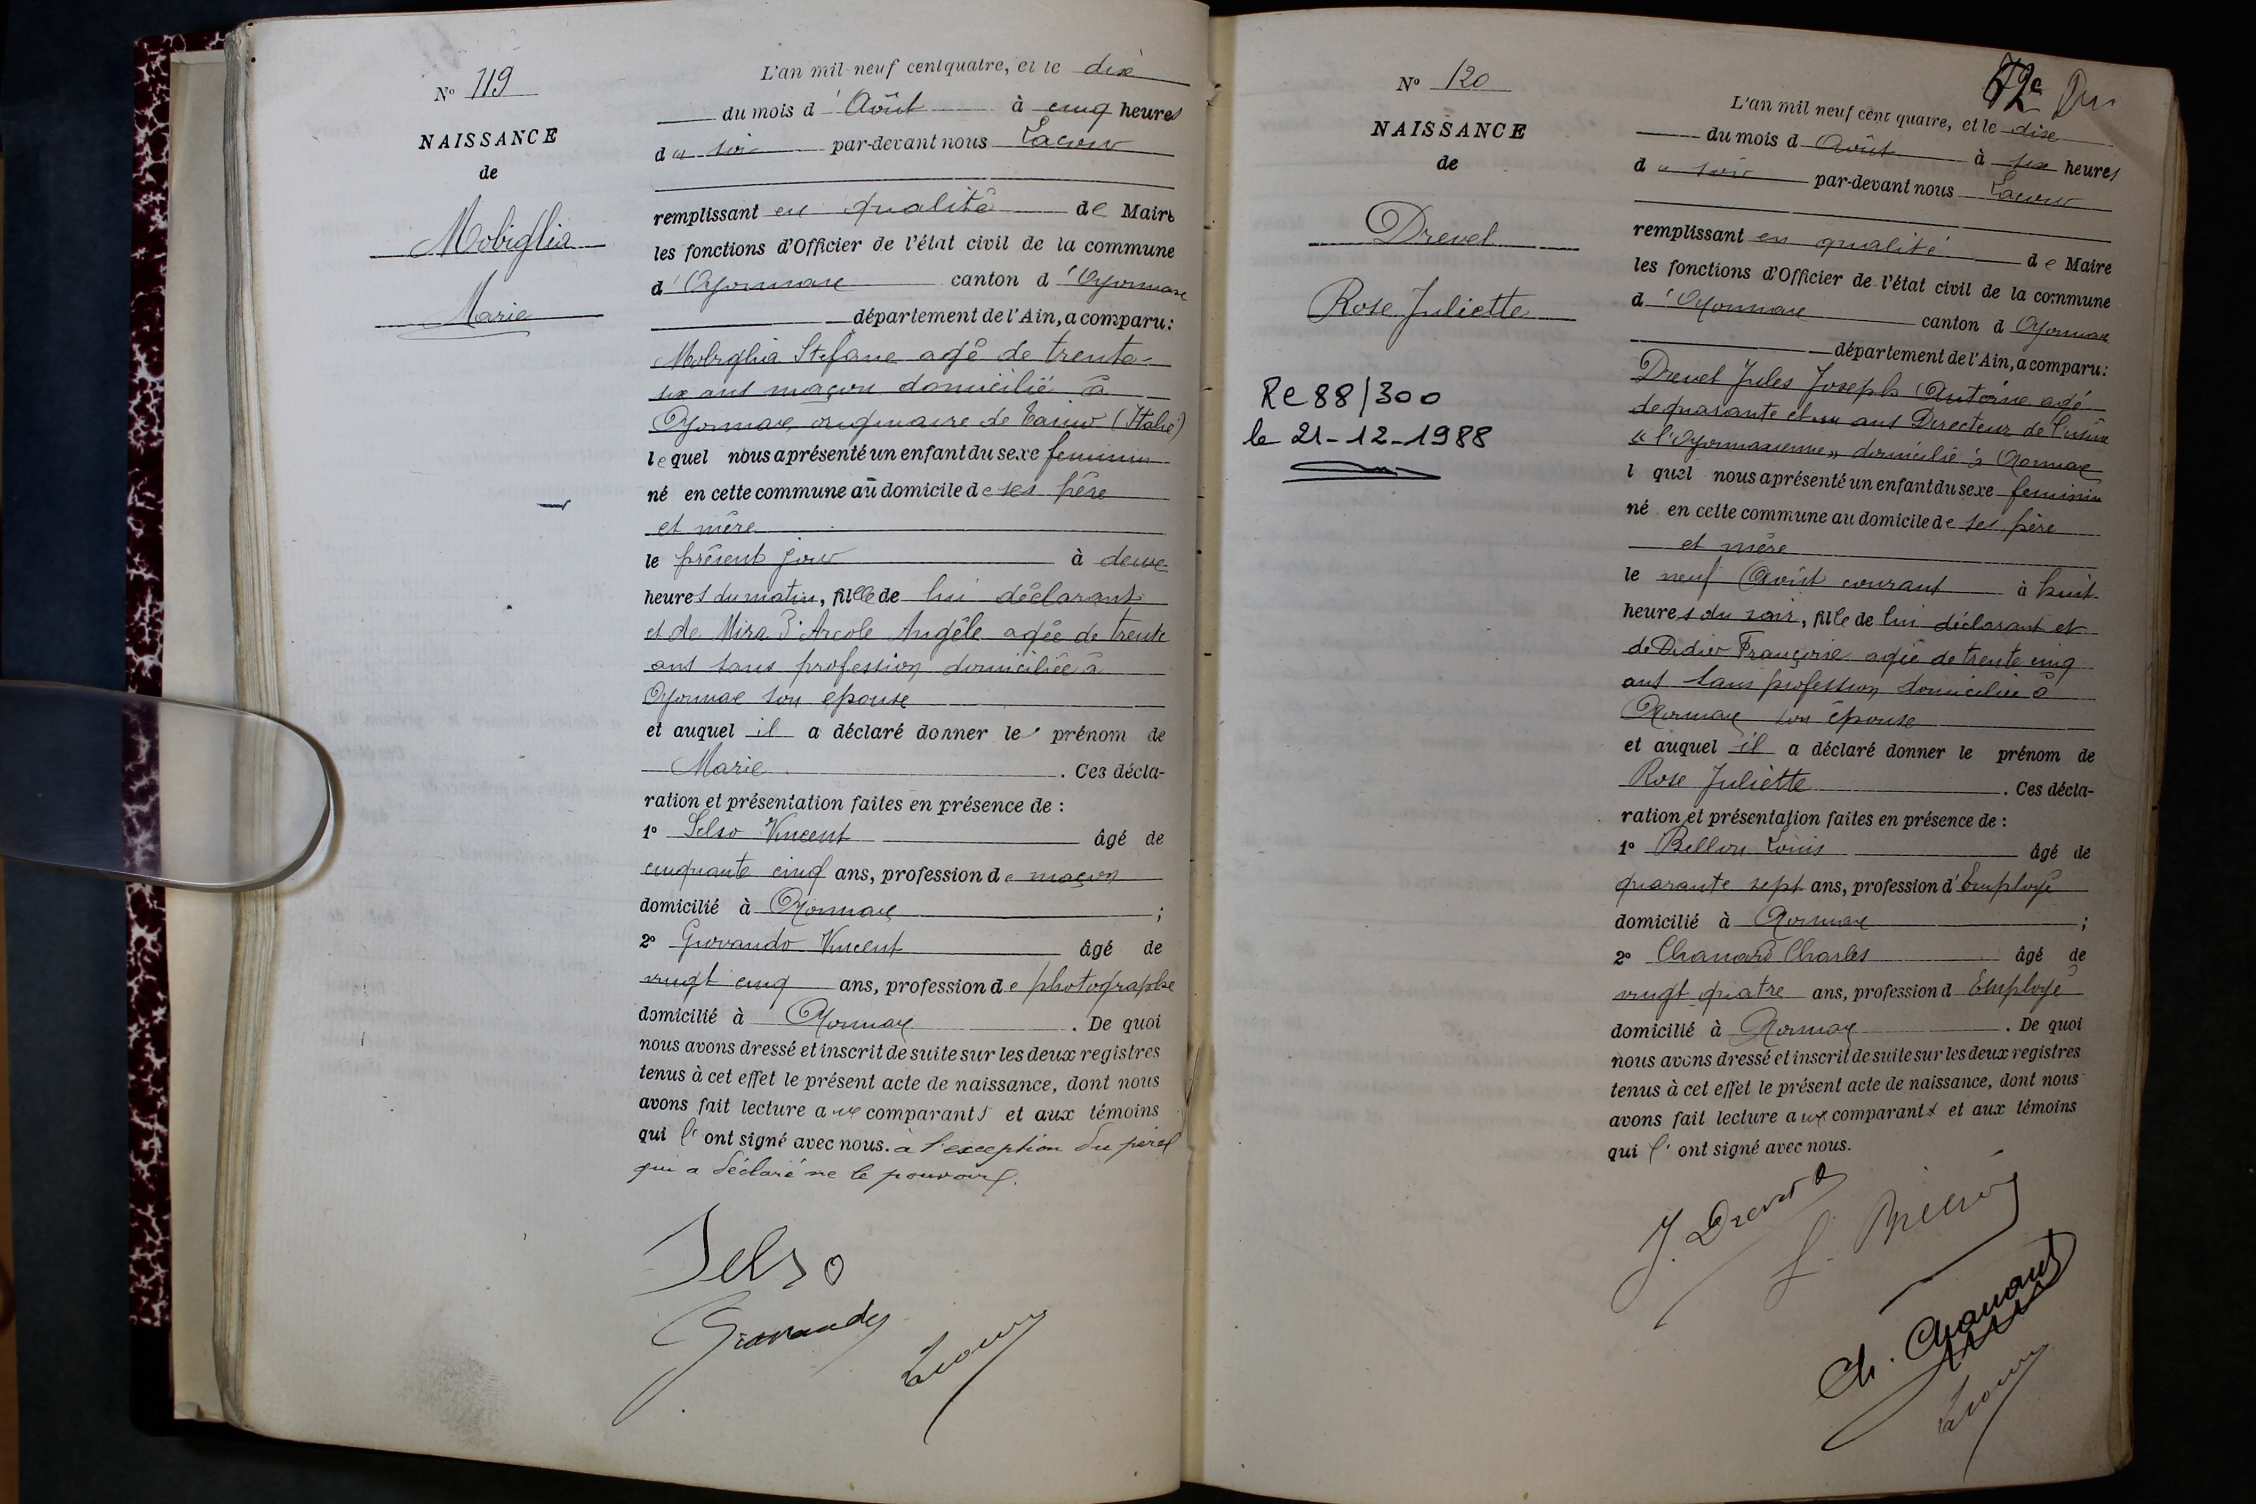 N° 119
NAISSANCE
de
Mobiglia
Marie
L'an mil neuf cent quatre, et le dix
du mois d'Août à cinq heures
du soir par-devant nous Lacour
remplissant en qualité de Maire
les fonctions d'Officier de l'état civil de la commune
d'Oyonnax canton d'Oyonnax
département de l'Ain, a comparu:
Mobiglia Stefane agé de trente
six ans maçon domicilié à
Oyonnax originaire de (Italie)
lequel nous a présenté un enfant du sexe feminin
né en cette commune au domicile de ses père
et mère
le présent jour à deux
heures du matin, fille de lui déclarant
et de Mira D'Arcole Angèle agée de trente
ans sans profession domiciliée à
Oyonnax son épouse
et auquel il a déclaré donner le prénom de
Marie. Ces décla-
ration et présentation faites en présence de :
1° Selso Vincent âgé de
cinquante cinq ans, profession de maçon
domicilié à Oyonnax ;
2° Giovando Vincent âgé de
vingt cinq ans, profession de photographe
domicilié à Oyonnax. De quoi
nous avons dressé et inscrit de suite sur les deux registres
tenus à cet effet le présent acte de naissance, dont nous
avons fait lecture aux comparants et aux témoins
qui l'ont signé avec nous. à l'exception du père
qui a déclaré ne le pouvoir.
Selso
Giovando
Lacour
72e
N° 120
NAISSANCE
de
Drevet
Rose Juliette
Re 88/300
le 21-12-1988
L'an mil neuf cent quatre, et le dix
du mois d Août à six heures
du soir par-devant nous Lacour
remplissant en qualité de Maire
les fonctions d'Officier de l'état civil de la commune
d'Oyonnax canton d Oyonnax
département de l'Ain, a comparu:
Drevet Jules Joseph Antoine agé
de quarante et un ans Directeur de l'usine
"l'Oyonnaxienne" domicilié à Oyonnax
l quel nous a présenté un enfant du sexe feminin
né en cette commune au domicile de ses père
et mère
le neuf Août courant à huit
heures du soir, fille de lui déclarant et
de Didier Françoise agée de trente cinq
ans sans profession domiciliée à
Oyonnax son épouse
et auquel il a déclaré donner le prénom de
Rose Juliette. Ces décla-
ration et présentation faites en présence de :
1° Bellon Louis âgé de
quarante sept ans, profession d'Employé
domicilié à Oyonnax ;
2° Chanard Charles âgé de
vingt quatre ans, profession d Employé
domicilié à Oyonnax. De quoi
nous avons dressé et inscrit de suite sur les deux registres
tenus à cet effet le présent acte de naissance, dont nous
avons fait lecture aux comparants et aux témoins
qui l'ont signé avec nous.
J. Drevet
Lacour